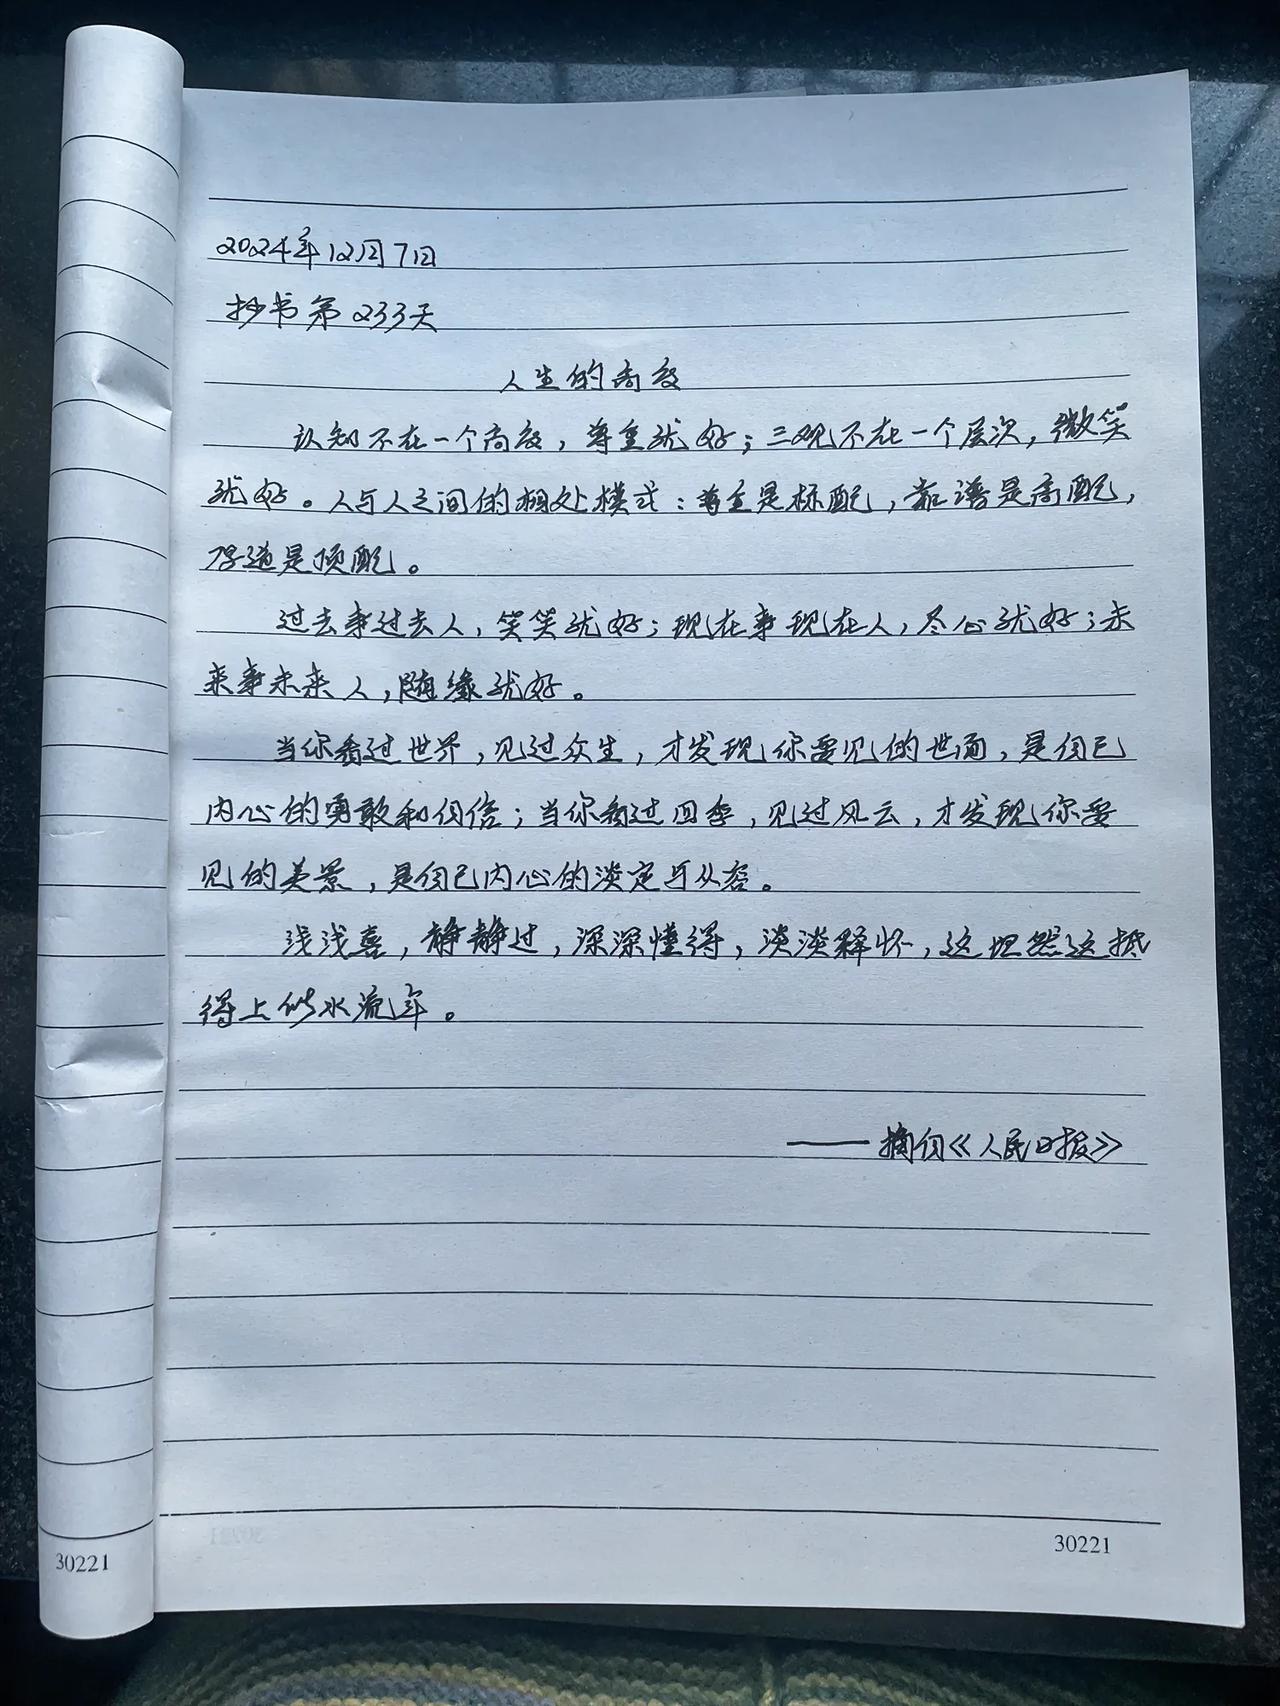 2024年12月7日
抄书第233天
人生的高度
认知不在一个高度，尊重就好；三观不在一个层次，微笑
就好。人与人之间的相处模式：尊重是标配，靠谱是高配，
厚道是顶配。
过去事过去人，笑笑就好；现在事现在人，尽心就好；未
来事未来人，随缘就好。
当你看过世界，见过众生，才发现你要见的世面，是自己
内心的勇敢和自信；当你看过四季，见过风云，才发现你要
见的美景，是自己内心的淡定与从容。
浅浅喜，静静过，深深懂得，淡淡释怀，这坦然这抵
得上似水流年。
——摘自《人民日报》
30221
30221